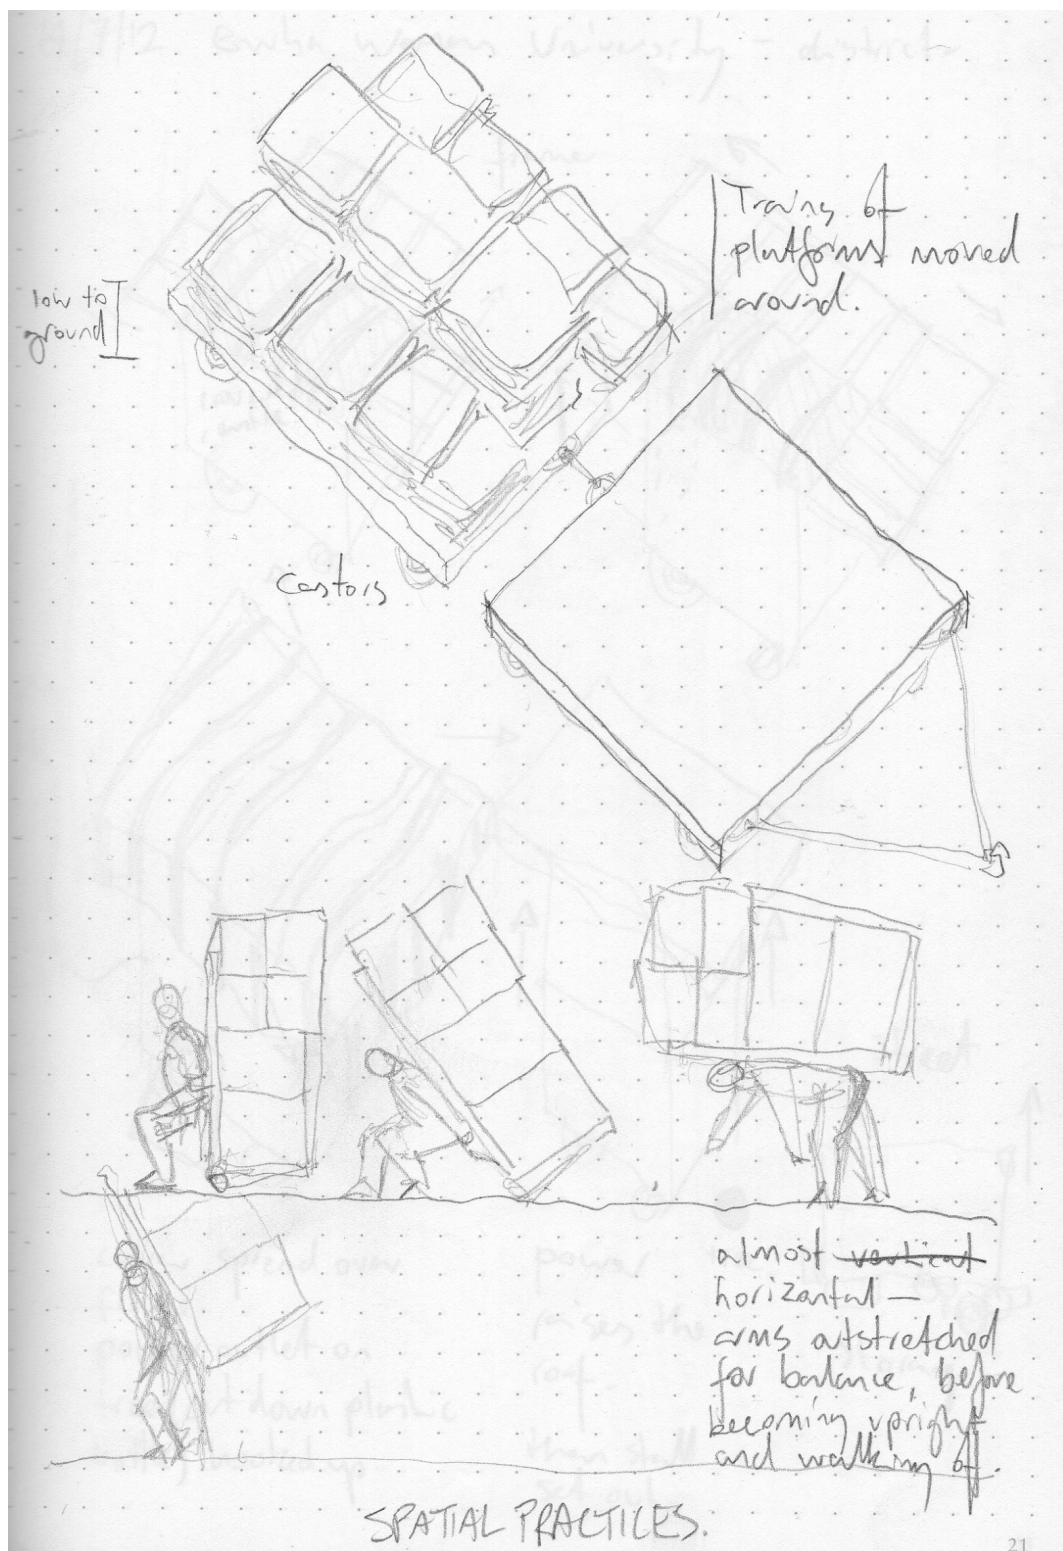 Trains of
platforms moved
around.
low to
ground
Castors
almost vertical
horizontal —
arms outstretched
for balance, before
becoming upright
and walking off.
SPATIAL PRACTICES.
21